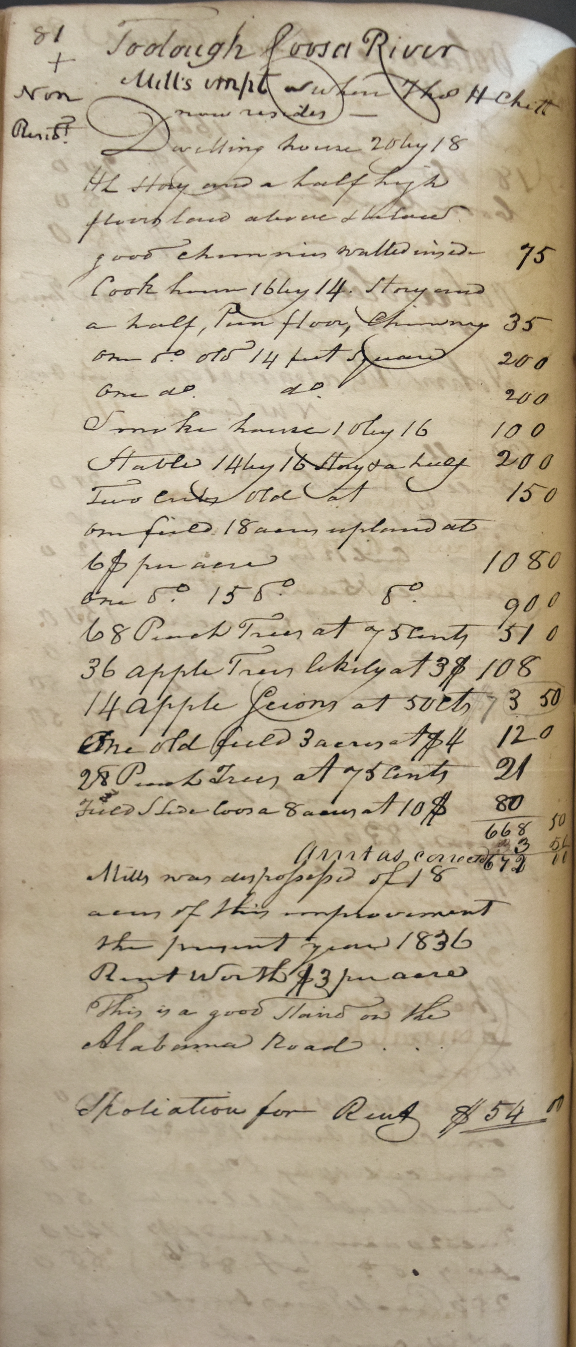 81
+
Non
Residt
Toolough Coosa River
Mill's impt or where Thos H Chett
now resides —
Dwelling house 20 by 18
HL story and a half high
floors laid above & below
good chimnies walled inside 75
Cook house 16 by 14. Story and
a half, Pun floor, Chimney 35
one do old 14 feet square 20 0
one do. do. 20 0
Smoke house 10 by 16 10 0
Stable 14 by 16 story & a half 20 0
Two cribs old at 15 0
one field 18 acres upland at
6$ per acre 108 0
one do. 15 do. do. 90 0
68 Peach Trees at 75 cents 51 0
36 apple Trees likely at 3$ 108
14 apple Scions at 50cts 7 3 50
One old field 3 acres at $4 12 0
28 Peach Trees at 75 cents 21
Field S side Coosa 8 acres at 10$ 80
668 50
3 50
Amt as corrected 672 00
Mills was dispossessed of 18
acres of this improvement
the present year 1836
Rent worth $3 per acre
This is a good stand on the
Alabama Road . . .
Spoliation for Rent $54 00